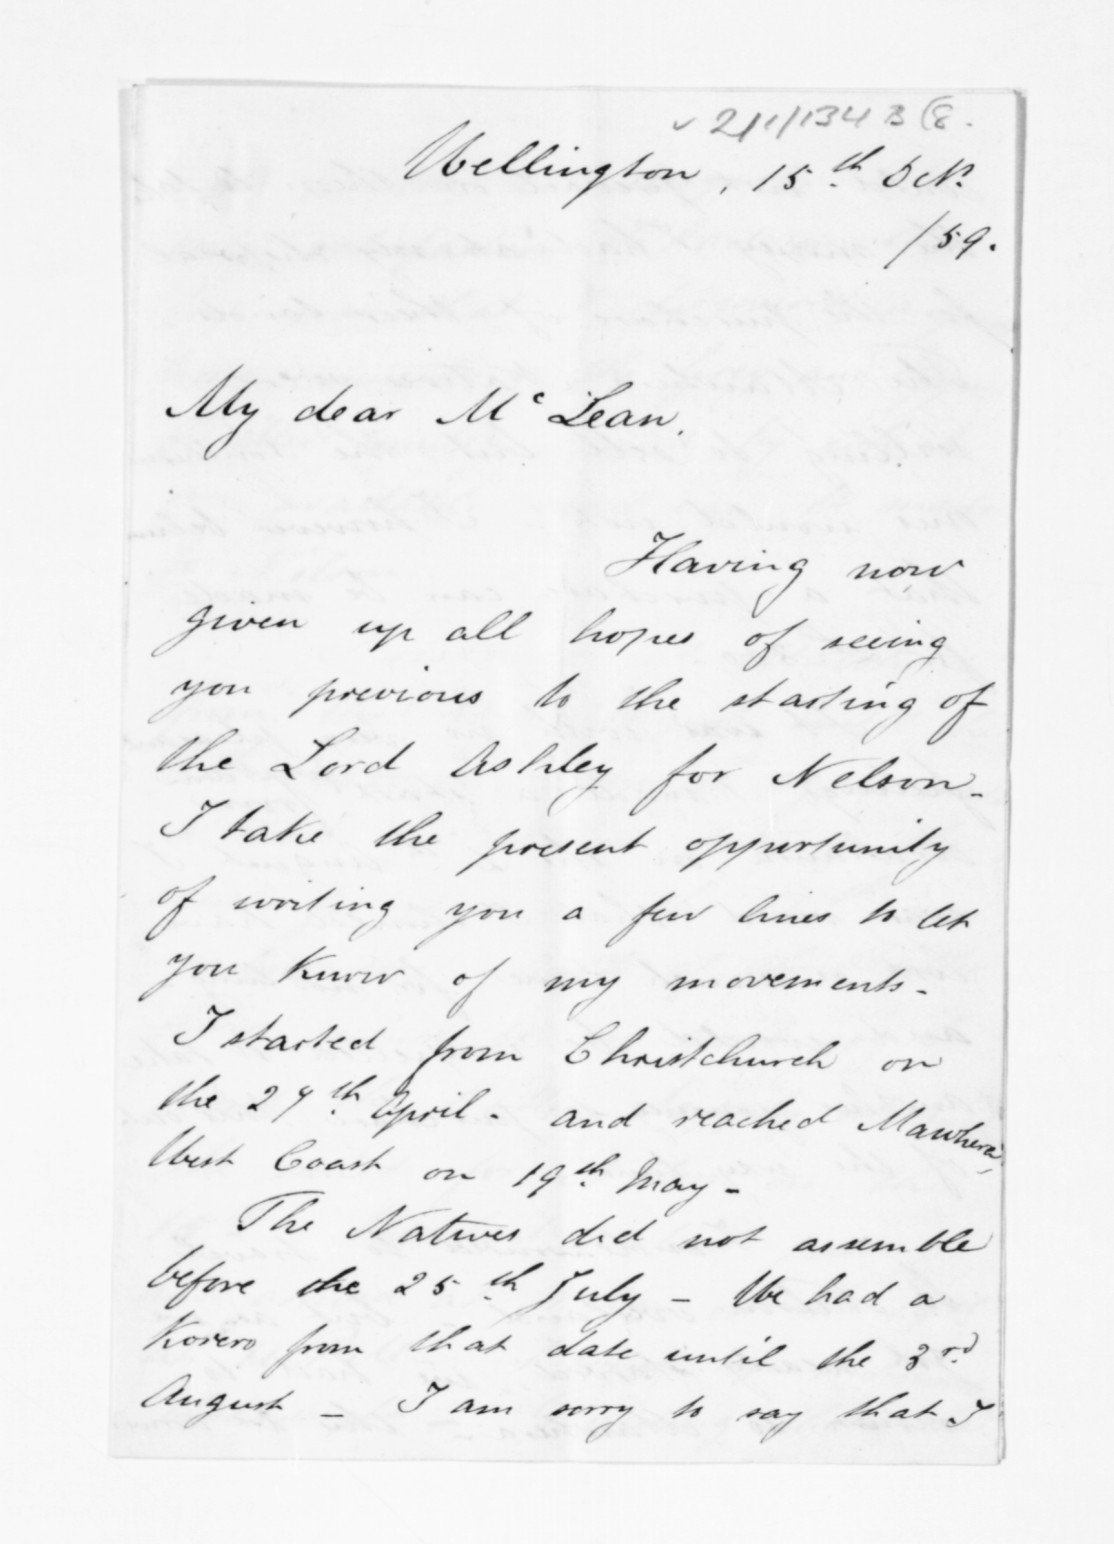 2/1/134 B (8.
Wellington, 15th Octr.
/59.
My dear McLean,
Having now
given up all hopes of seeing
you previous to the starting of
the Lord Ashley for Nelson -
I take the present opportunity
of writing you a few lines to let
you know of my movements -
I started from Christchurch on
the 27th April - and reached Mawhera,
West Coast on 19th May -
The Natives did not assemble
before the 25th July - We had a
Korero from that date until the 3rd
August - I am sorry to say that I